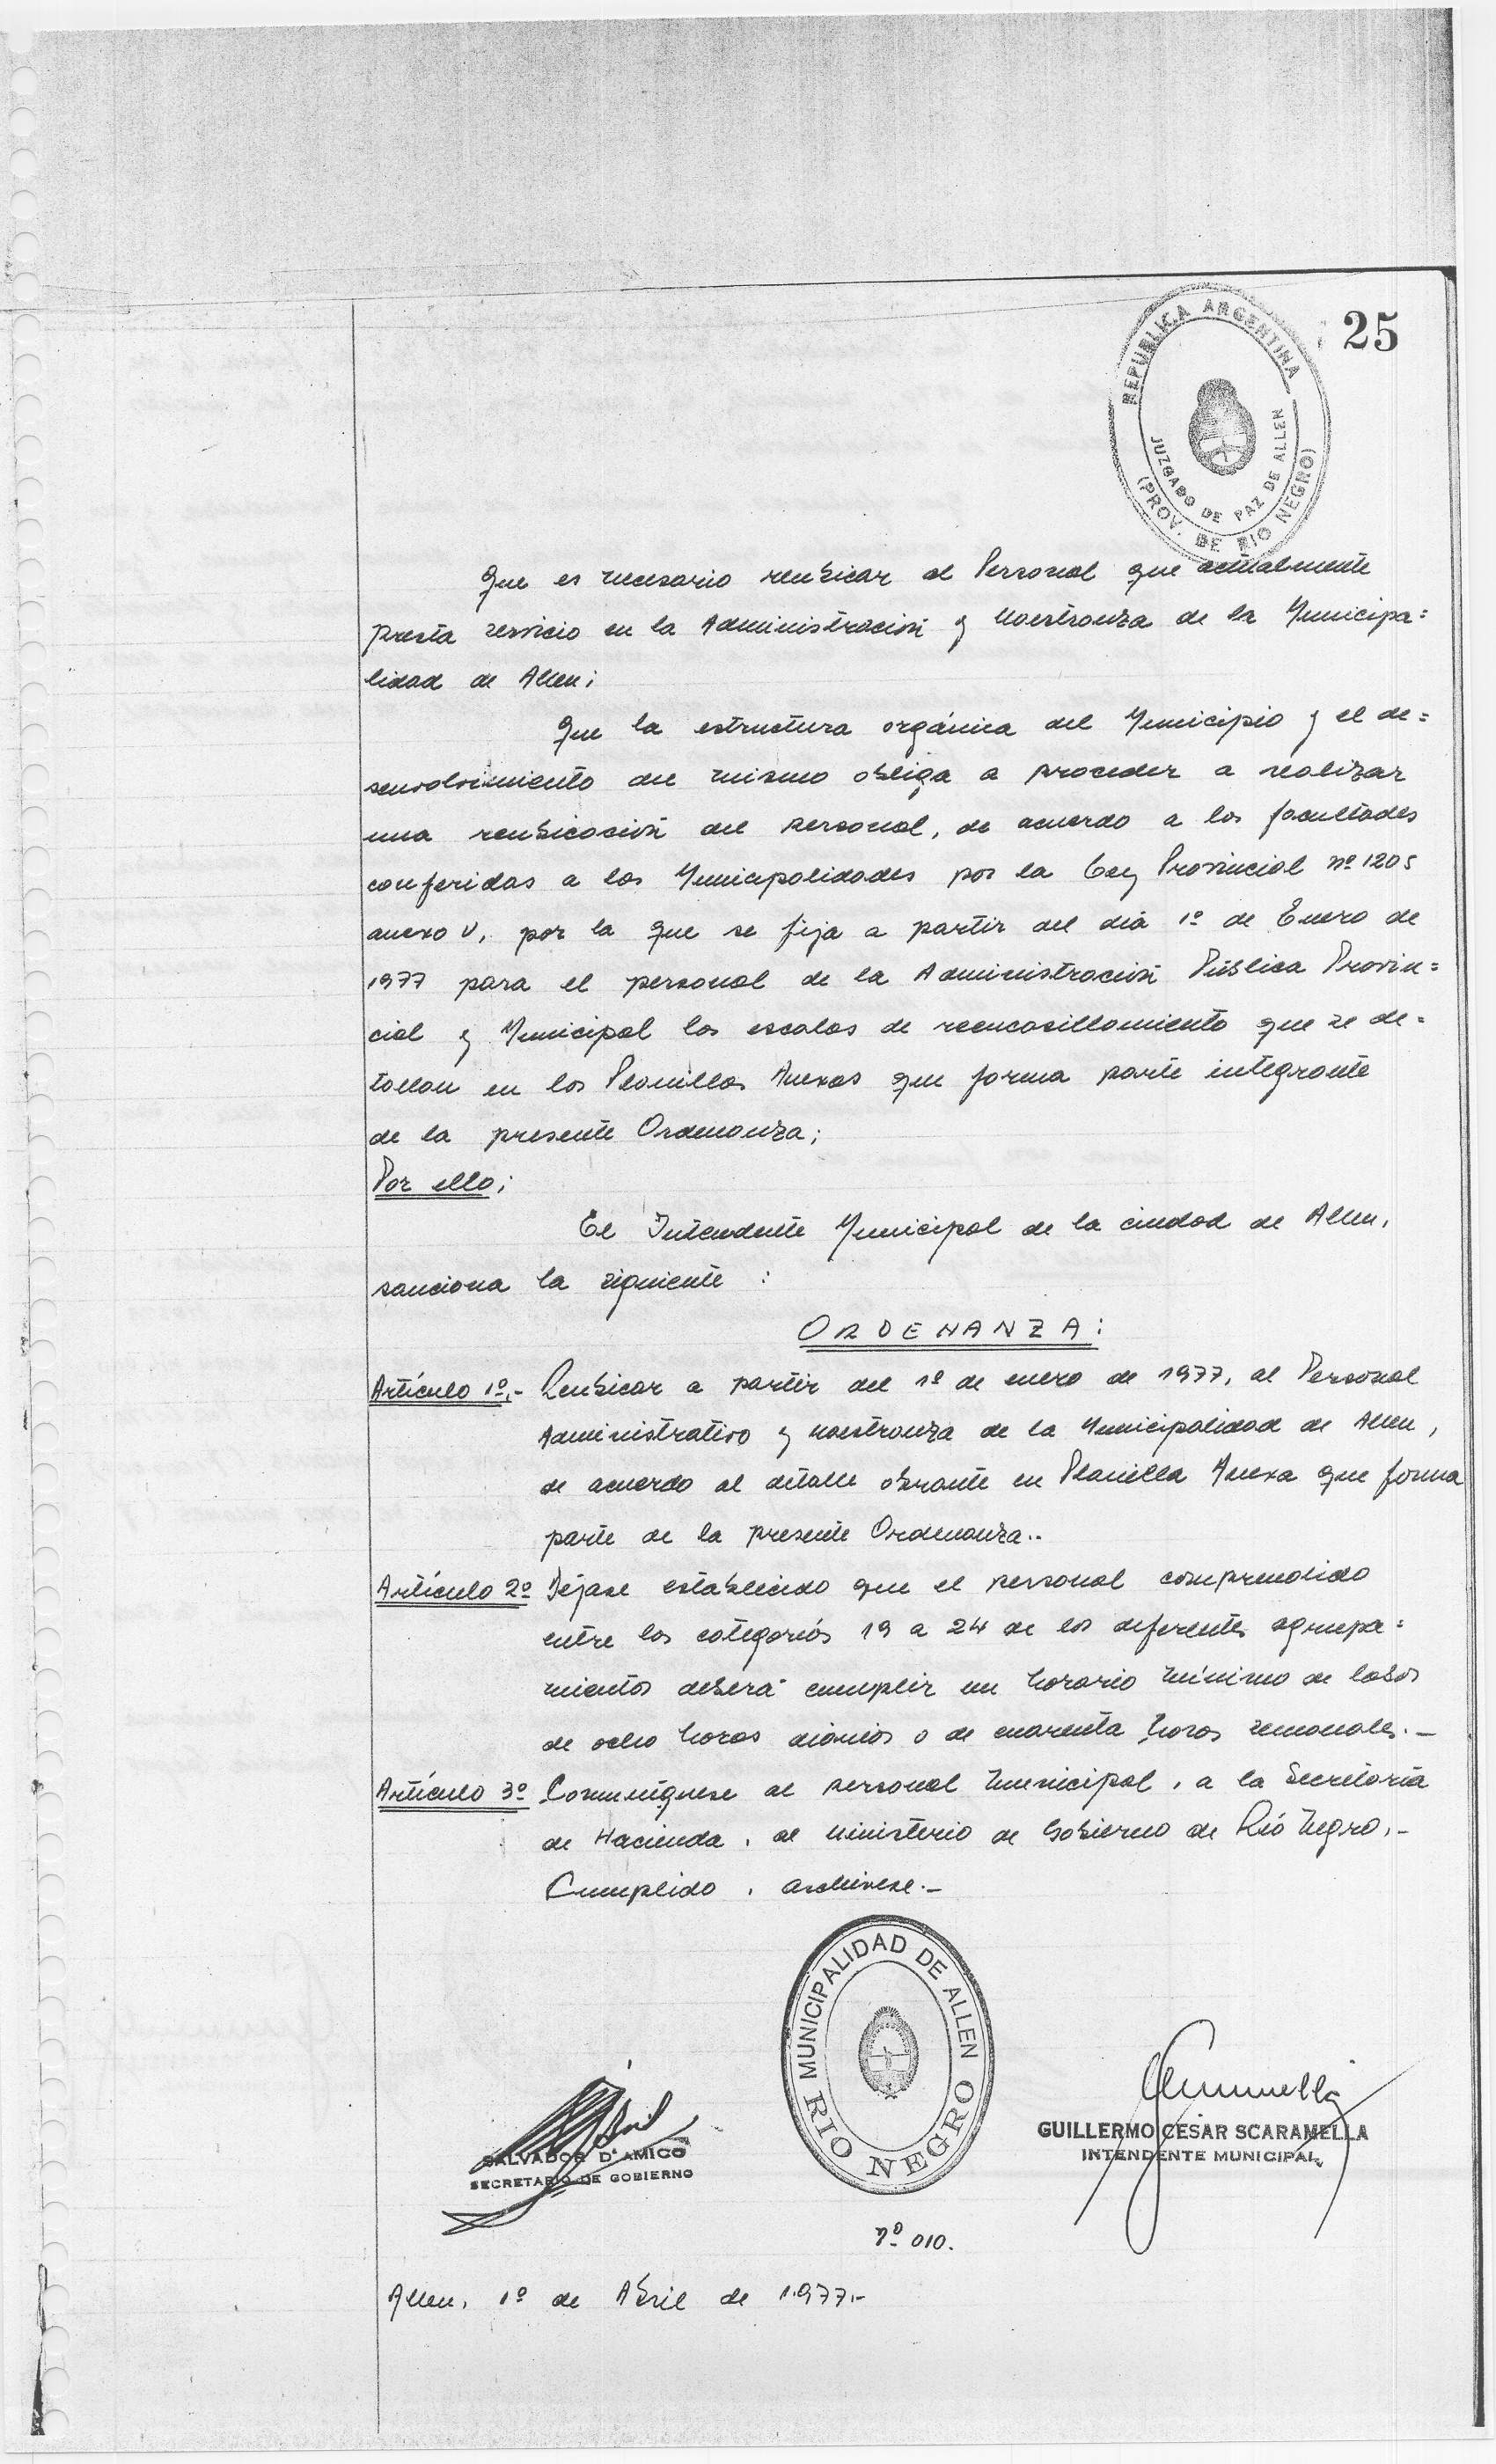 25
REPUBLICA ARGENTINA
JUZGADO DE PAZ DE ALLEN
(PROV. DE RIO NEGRO)
Que es necesario reubicar al Personal que actualmente
presta servicio en la Administración y Maestranza de la Municipa=
lidad de Allen;
Que la estructura orgánica del Municipio y el de=
senvolvimiento del mismo obliga a proceder a realizar
una reubicación del personal, de acuerdo a las facultades
conferidas a las Municipalidades por la Ley Provincial nº 1205
anexo V, por la que se fija a partir del día 1º de Enero de
1977 para el personal de la Administración Pública Provin=
cial y Municipal las escalas de reencasillamiento que se de=
tallan en las Planillas Anexas que forma parte integrante
de la presente Ordenanza;
Por ello;
El Intendente Municipal de la ciudad de Allen,
sanciona la siguiente :
ORDENANZA:
Artículo 1º.- Reubicar a partir del 1º de enero de 1977, al Personal
Administrativo y maestranza de la Municipalidad de Allen,
de acuerdo al detalle obrante en Planilla Anexa que forma
parte de la presente Ordenanza..
Artículo 2º Déjase establecido que el personal comprendido
entre las categorías 19 a 24 de los diferentes agrupa=
mientos deberá cumplir un horario mínimo de labor
de ocho horas diarias o de cuarenta horas semanales.-
Artículo 3º Comuníquese al personal municipal, a la Secretaría
de Hacienda, al Ministerio de Gobierno de Río Negro.-
Cumplido, archívese.-
MUNICIPALIDAD DE ALLEN
RIO NEGRO
SALVADOR D'AMICO
SECRETARIO DE GOBIERNO
GUILLERMO CESAR SCARAMELLA
INTENDENTE MUNICIPAL
nº 010.
Allen, 1º de Abril de 1.977.-